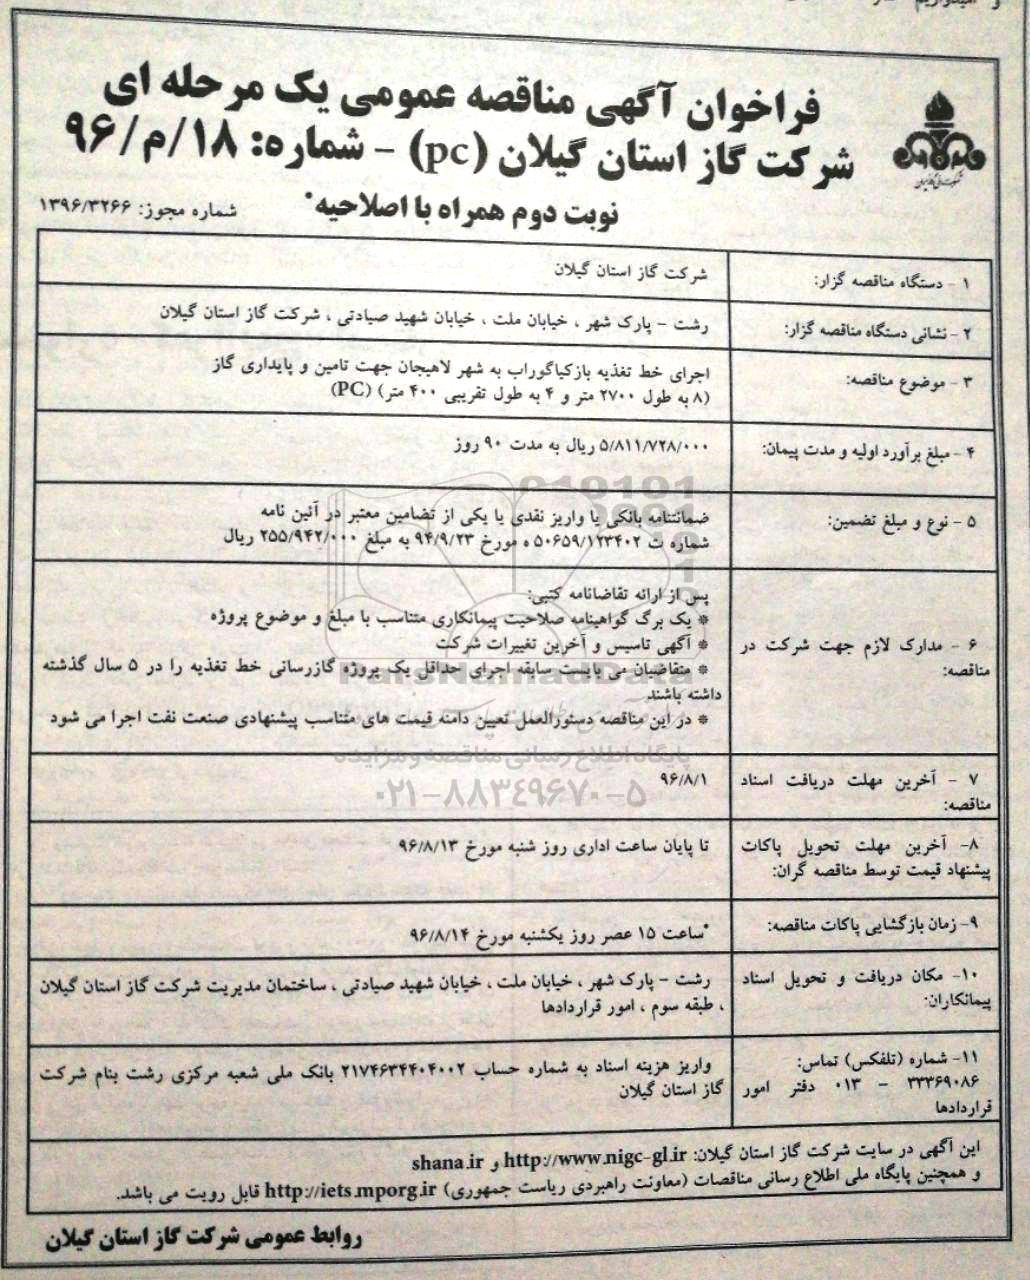 فراخوان آگهی مناقصه عمومی یک مرحله ای
شرکت گاز استان گیلان (pc) - شماره: ۱۸/م/۹۶
نوبت دوم همراه با اصلاحیه*
شماره مجوز: ۱۳۹۶/۳۲۶۶
شرکت ملی گاز ایران
۱ - دستگاه مناقصه گزار:
شرکت گاز استان گیلان
۲ - نشانی دستگاه مناقصه گزار:
رشت - پارک شهر ، خیابان ملت ، خیابان شهید صیادتی ، شرکت گاز استان گیلان
۳ - موضوع مناقصه:
اجرای خط تغذیه بازکیاگوراب به شهر لاهیجان جهت تامین و پایداری گاز
(۸ به طول ۲۷۰۰ متر و ۴ به طول تقریبی ۴۰۰ متر) (PC)
۴ - مبلغ برآورد اولیه و مدت پیمان:
۵/۸۱۱/۷۲۸/۰۰۰ ریال به مدت ۹۰ روز
۵ - نوع و مبلغ تضمین:
ضمانتنامه بانکی یا واریز نقدی یا یکی از تضامین معتبر در آئین نامه
شماره ت ۵۰۶۵۹/۱۲۳۴۰۲ ه مورخ ۹۴/۹/۲۳ به مبلغ ۲۵۵/۹۴۲/۰۰۰ ریال
۶ - مدارک لازم جهت شرکت در
مناقصه:
پس از ارائه تقاضانامه کتبی:
* یک برگ گواهینامه صلاحیت پیمانکاری متناسب با مبلغ و موضوع پروژه
* آگهی تاسیس و آخرین تغییرات شرکت
* متقاضیان می بایست سابقه اجرای حداقل یک پروژه گازرسانی خط تغذیه را در ۵ سال گذشته
داشته باشند
* در این مناقصه دستورالعمل تعیین دامنه قیمت های متناسب پیشنهادی صنعت نفت اجرا می شود
۷ - آخرین مهلت دریافت اسناد
مناقصه:
۹۶/۸/۱
۸- آخرین مهلت تحویل پاکات
پیشنهاد قیمت توسط مناقصه گران:
تا پایان ساعت اداری روز شنبه مورخ ۹۶/۸/۱۳
۹- زمان بازگشایی پاکات مناقصه:
*ساعت ۱۵ عصر روز یکشنبه مورخ ۹۶/۸/۱۴
۱۰- مکان دریافت و تحویل اسناد
پیمانکاران:
رشت - پارک شهر ، خیابان ملت ، خیابان شهید صیادتی ، ساختمان مدیریت شرکت گاز استان گیلان
، طبقه سوم ، امور قراردادها
۱۱- شماره (تلفکس) تماس:
۳۳۳۶۹۰۸۶ - ۰۱۳ دفتر امور
قراردادها
واریز هزینه اسناد به شماره حساب ۲۱۷۴۶۳۴۴۰۴۰۰۲ بانک ملی شعبه مرکزی رشت بنام شرکت
گاز استان گیلان
این آگهی در سایت شرکت گاز استان گیلان: http://www.nigc-gl.ir و shana.ir
و همچنین پایگاه ملی اطلاع رسانی مناقصات (معاونت راهبردی ریاست جمهوری) http://iets.mporg.ir قابل رویت می باشد.
روابط عمومی شرکت گاز استان گیلان
ParsNamadData
پایگاه اطلاع رسانی مناقصه و مزایده
۰۲۱-۸۸۳۴۹۶۷۰-۵